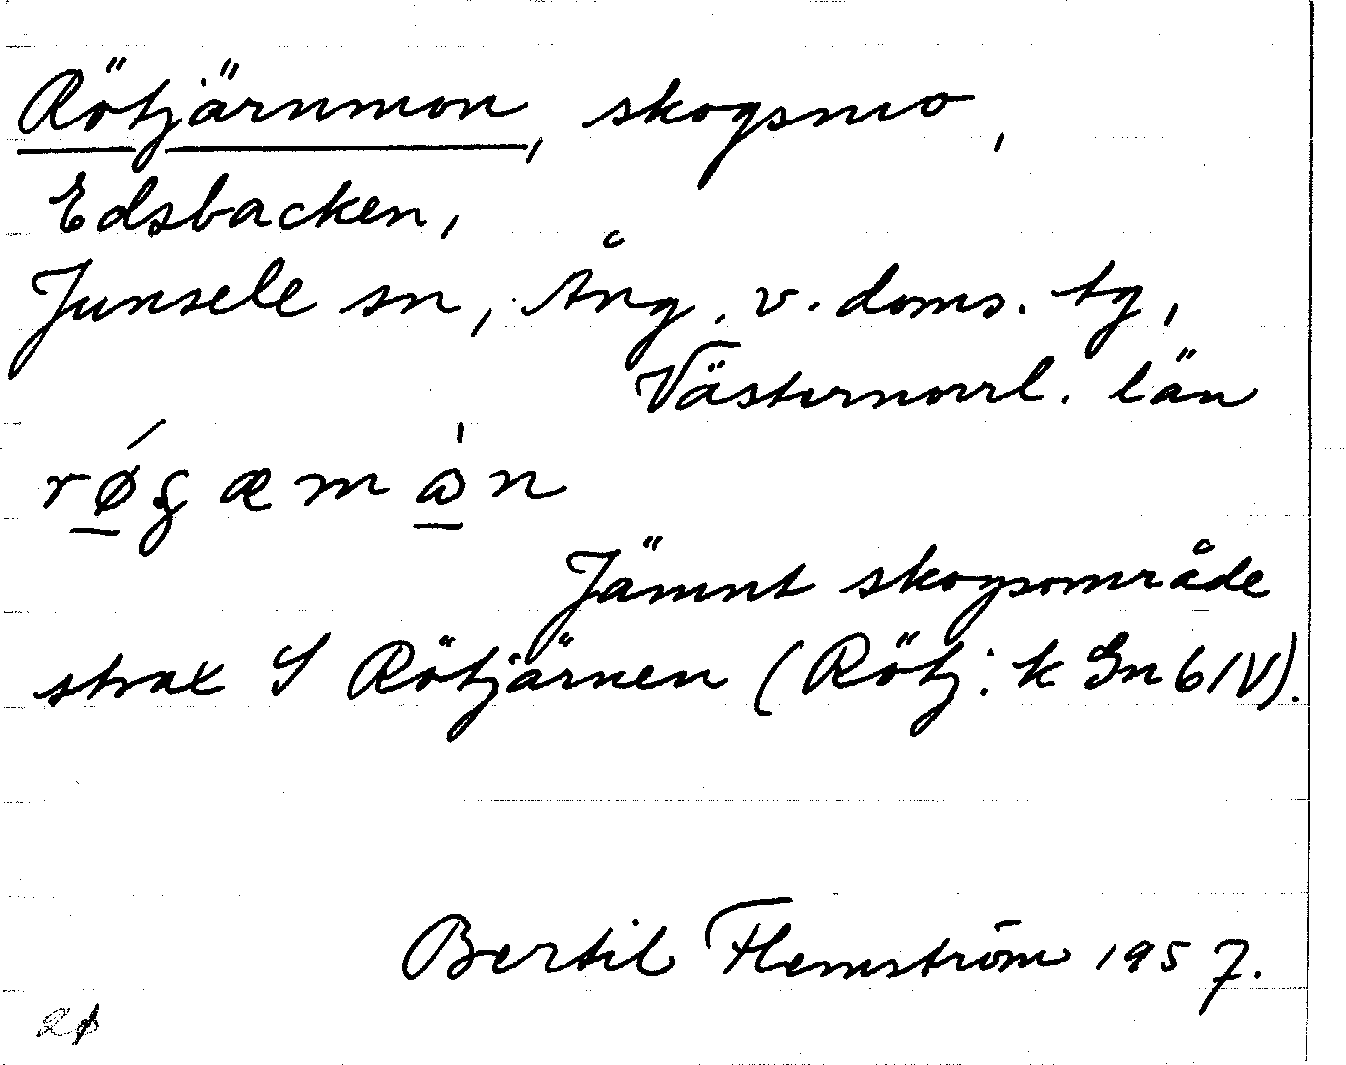 Rötjärnmon, skogsmo,
Edsbacken,
Junsele sn, Ång. v. doms. tg,
Västernorrl. län
Jämnt skogsområde
strax S Rötjärnen (Rötj: k Gn 6 IV).
Bertil Flemström 1957.